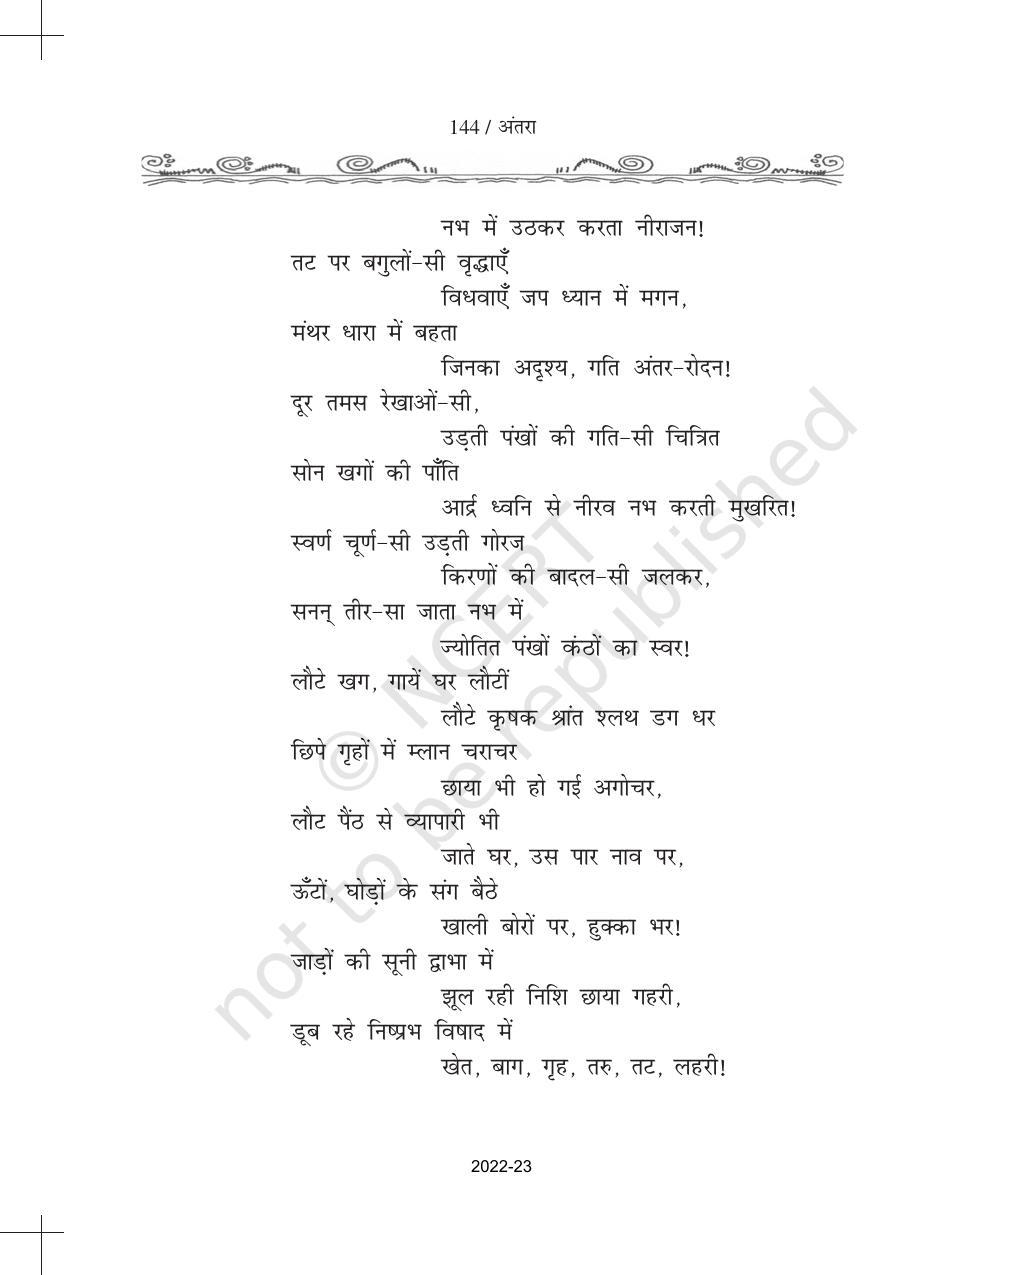 144 / अंतरा
नभ में उठकर करता नीराजन!
तट पर बगुलों-सी वृद्धाएँ
विधवाएँ जप ध्यान में मगन,
मंथर धारा में बहता
जिनका अदृश्य, गति अंतर-रोदन!
दूर तमस रेखाओं-सी,
उड़ती पंखों की गति-सी चित्रित
सोन खगों की पाँति
आर्द्र ध्वनि से नीरव नभ करती मुखरित!
स्वर्ण चूर्ण-सी उड़ती गोरज
किरणों की बादल-सी जलकर,
सनन् तीर-सा जाता नभ में
ज्योतित पंखों कंठों का स्वर!
लौटे खग, गायें घर लौटीं
लौटे कृषक श्रांत श्लथ डग धर
छिपे गृहों में म्लान चराचर
छाया भी हो गई अगोचर,
लौट पैंठ से व्यापारी भी
जाते घर, उस पार नाव पर,
ऊँटों, घोड़ों के संग बैठे
खाली बोरों पर, हुक्का भर!
जाड़ों की सूनी द्वाभा में
झूल रही निशि छाया गहरी,
डूब रहे निष्प्रभ विषाद में
खेत, बाग, गृह, तरु, तट, लहरी!
© NCERT
not to be republished
2022-23